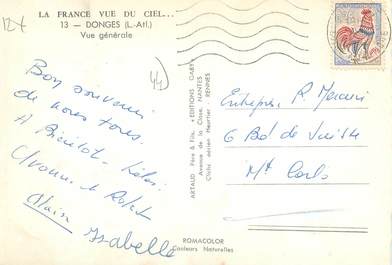 12+
LA FRANCE VUE DU CIEL...
13 — DONGES (L.-Atl.)
Vue générale
44
Bon souvenir
de nous tous.
A Bientôt
Yvonne et
Alain Isabelle
ARTAUD Père & Fils, "EDITIONS GABY"
Avenue de la Close, NANTES
Cliché aérien Heurtier RENNES
Entreprise R.
6 Bd de
Mte Carlo
ROMACOLOR
Couleurs Naturelles